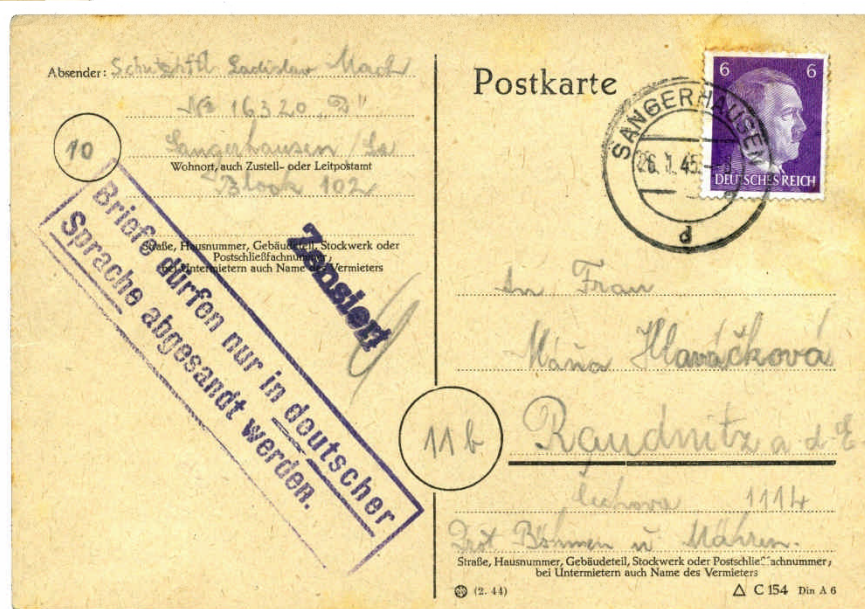 Absender: Schutzhftl Ladislav Mach
№ 16320 „D"
10
Sangerhausen
Wohnort, auch Zustell- oder Leitpostamt
Block 102
Straße, Hausnummer, Gebäudeteil, Stockwerk oder
Postschließfachnummer,
bei Untermietern auch Name des Vermieters
Zensiert
Briefe dürfen nur in deutscher
Sprache abgesandt werden.
Postkarte
6 6
DEUTSCHES REICH
SANGERHAUSEN
26.1.45
d
An Frau
Máňa Hlaváčková
11b
Raudnitz a d. E
Čechova 1114
Prot Böhmen u Mähren.
Straße, Hausnummer, Gebäudeteil, Stockwerk oder Postschließfachnummer,
bei Untermietern auch Name des Vermieters
(2. 44)
C 154 Din A 6